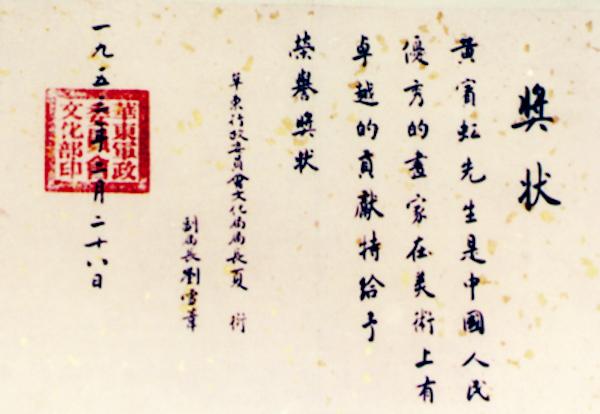 獎狀
黃賓虹先生是中國人民
優秀的畫家在美術上有
卓越的貢獻特給予
榮譽獎狀
華東行政委員會文化局局長夏衍
副局長劉雪葦
一九五三年二月二十八日
華東軍政
委員會
文化部印